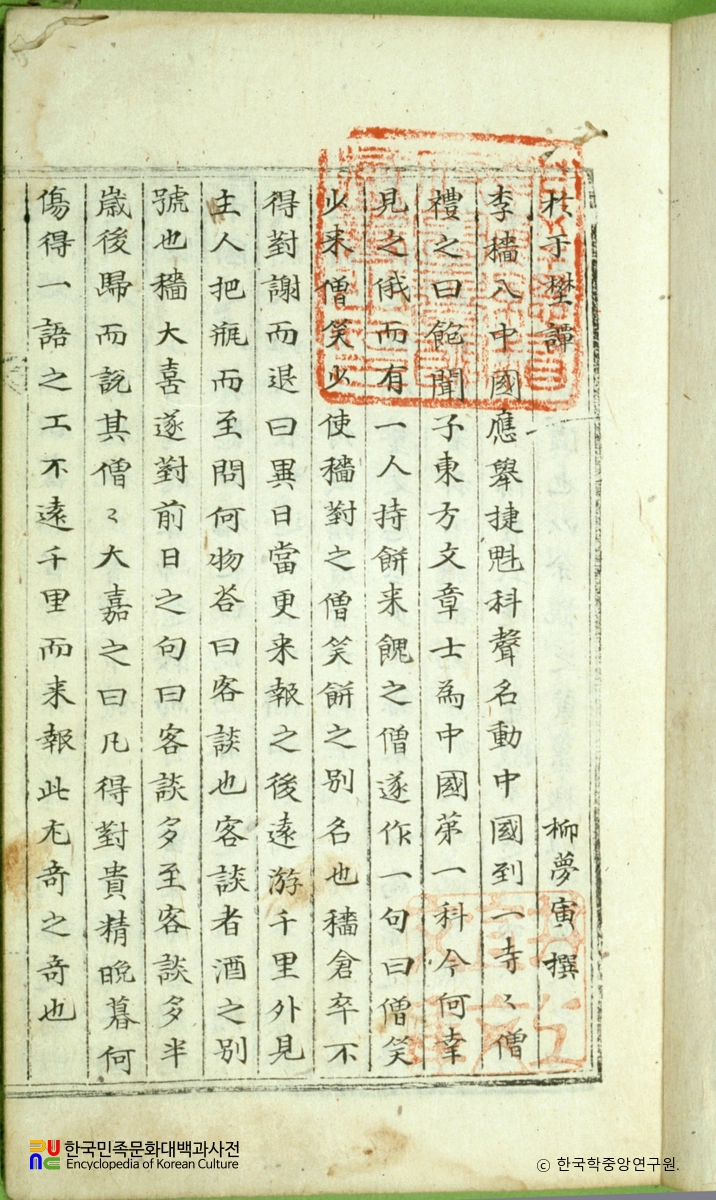 於于埜譚
柳夢寅撰
李穡入中國應舉捷魁科聲名動中國到一寺〻僧
禮之曰飽聞子東方文章士為中國第一科今何幸
見之俄而有一人持餠来餽之僧遂作一句曰僧笑
少来僧笑少使穡對之僧笑餠之別名也穡倉卒不
得對謝而退曰異日當更来報之後遠游千里外見
主人把瓶而至問何物荅曰客談也客談者酒之別
號也穡大喜遂對前日之句曰客談多至客談多半
歲後歸而說其僧〻大嘉之曰凡得對貴精晩暮何
傷得一語之工不遠千里而来報此尤竒之竒也
한국민족문화대백과사전
Encyclopedia of Korean Culture
© 한국학중앙연구원.